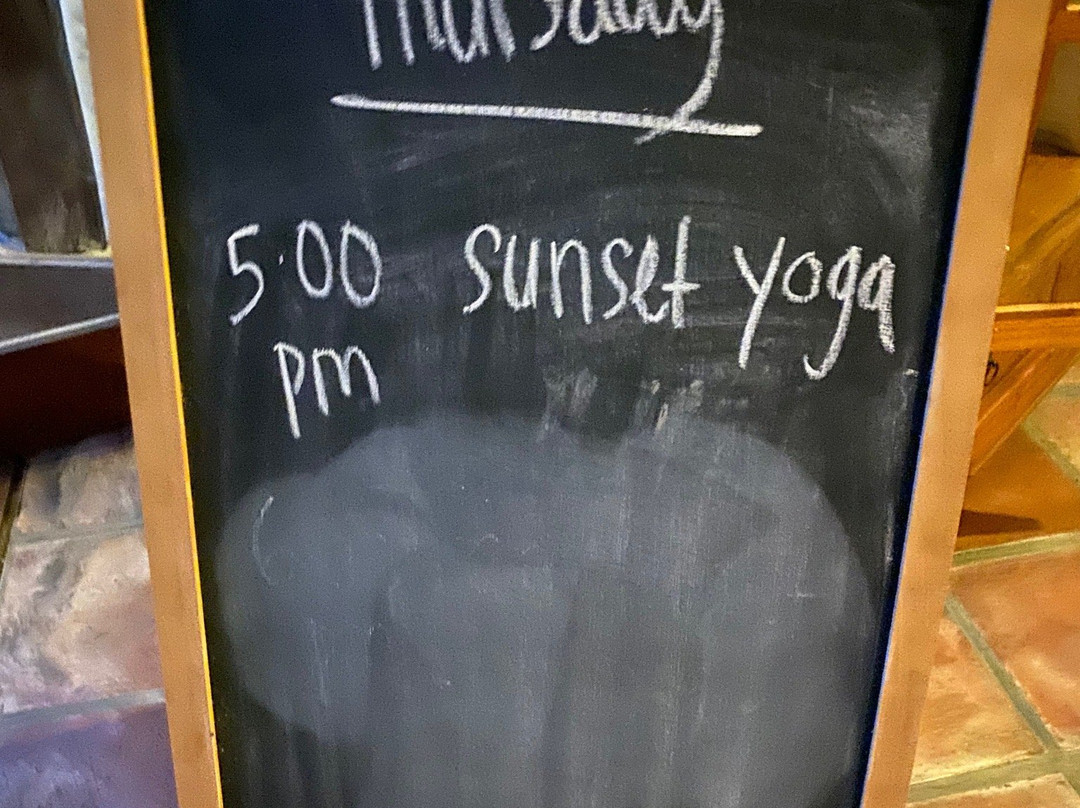 Thursday
5:00 sunset yoga
pm